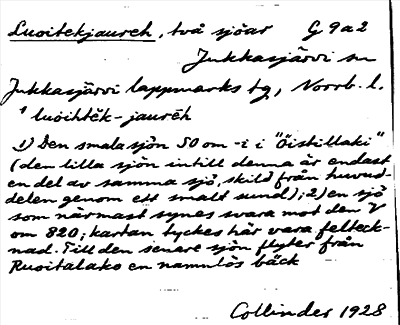 Luoitekjaureh, två sjöar G 9a2
Jukkasjärvi sn
Jukkasjärvi lappmarks tg, Norrb. l.
' luoihtĕk-jaurēh
1) Den smala sjön SO om -i i "Öistillaki"
(den lilla sjön intill denna är endast
en del av samma sjö, skild från huvud-
delen genom ett smalt sund); 2) en sjö
som närmast synes svara mot den V
om 820; kartan tyckes här vara felteck-
nad. Till den senare sjön flyter från
Ruoitalako en namnlös bäck
Collinder 1928